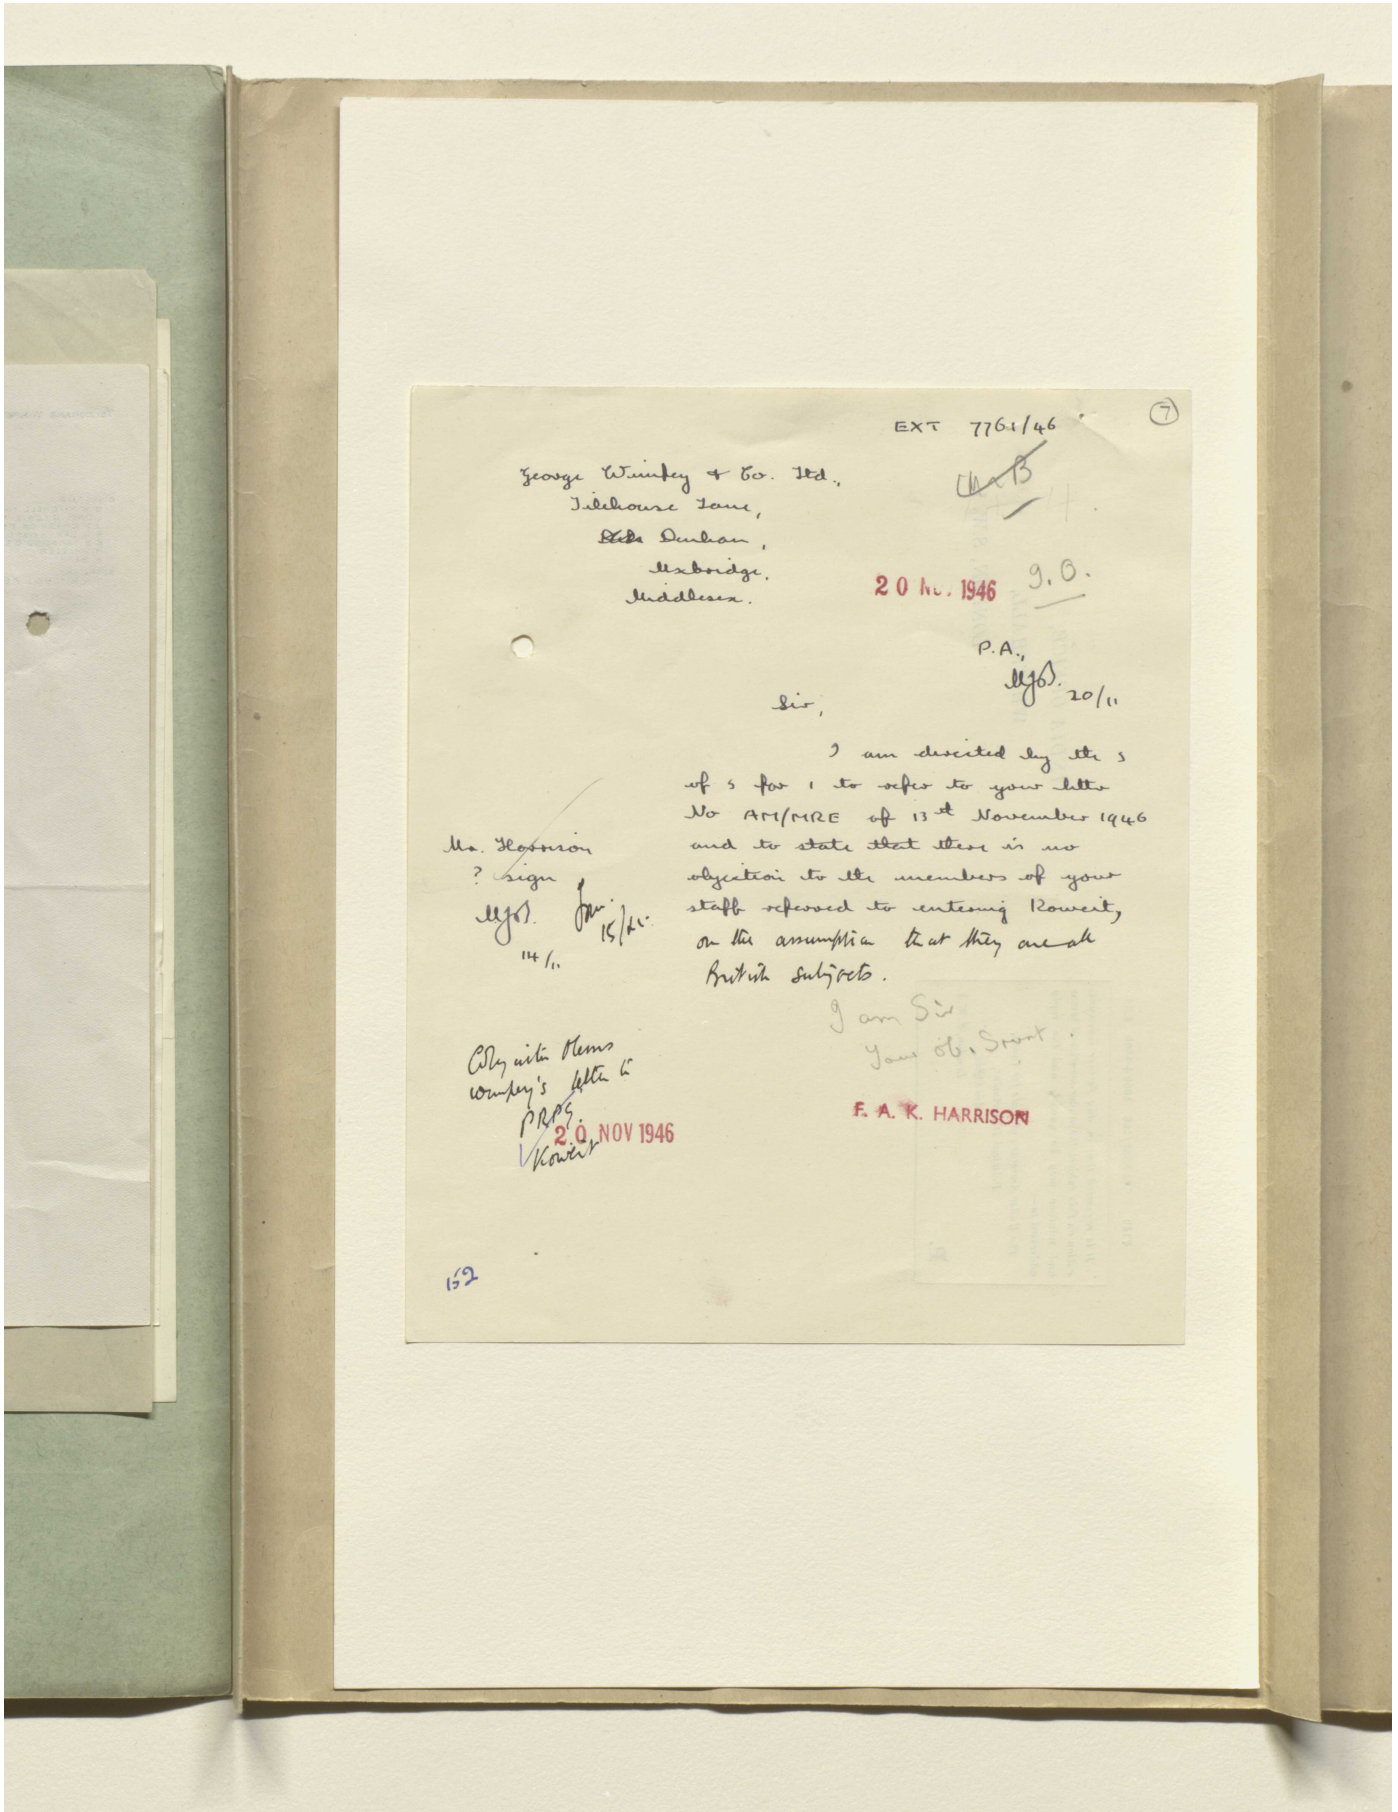 7
EXT 7761/46
George Wimpey & Co. Ltd.,
Tilehouse Lane,
Denham,
Uxbridge,
Middlesex.
20 NO. 1946
g.o.
P.A.,
MJB. 20/11
Sir,
I am directed by the S
of S for I to refer to your letter
No AM/MRE of 13th November 1946
and to state that there is no
objection to the members of your
staff referred to entering Koweit,
on the assumption that they are all
British subjects.
Mr. Harrison
? sign
MJB.
14/11
15/xi.
I am Sir
Your Ob. Servt.
F. A. K. HARRISON
Copy with Messrs
Wimpey's letter to
PRPG.
20 NOV 1946
Koweit
152